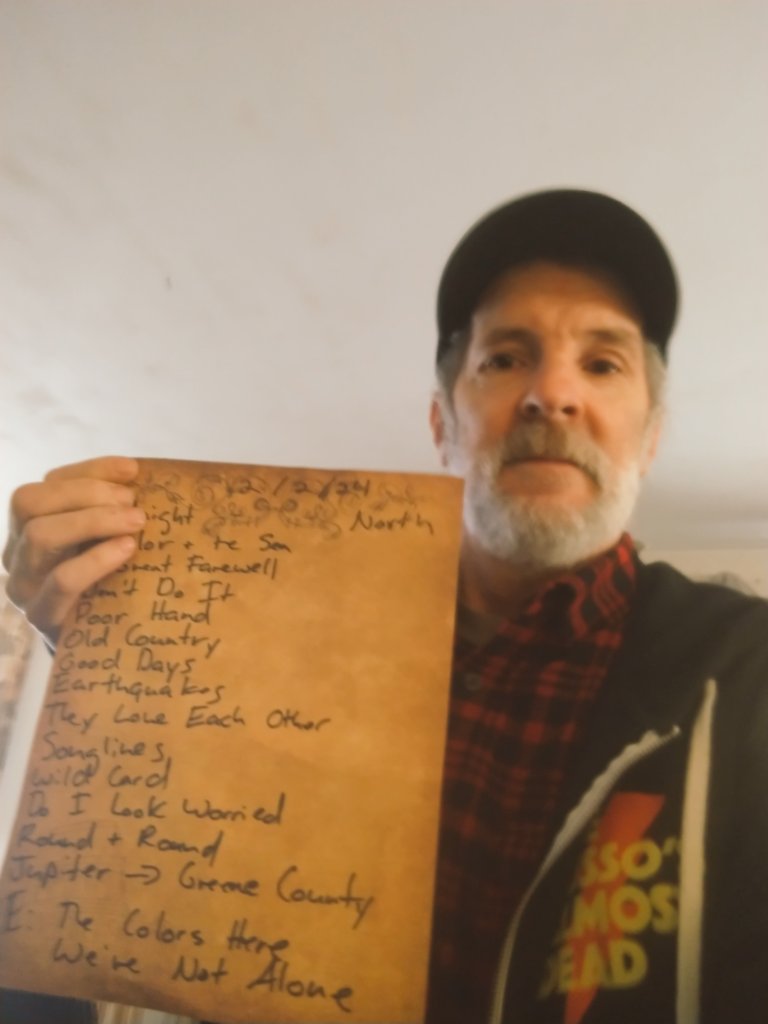 12/2/24
North
+ te Sea
Great Farewell
Don't Do It
Poor Hand
Old Country
Good Days
Earthquakes
They Love Each Other
Songlines
Wild Card
Do I Look Worried
Round + Round
Jupiter → Greene County
E: The Colors Here
We're Not Alone
SSO'
LMOS
DEAD